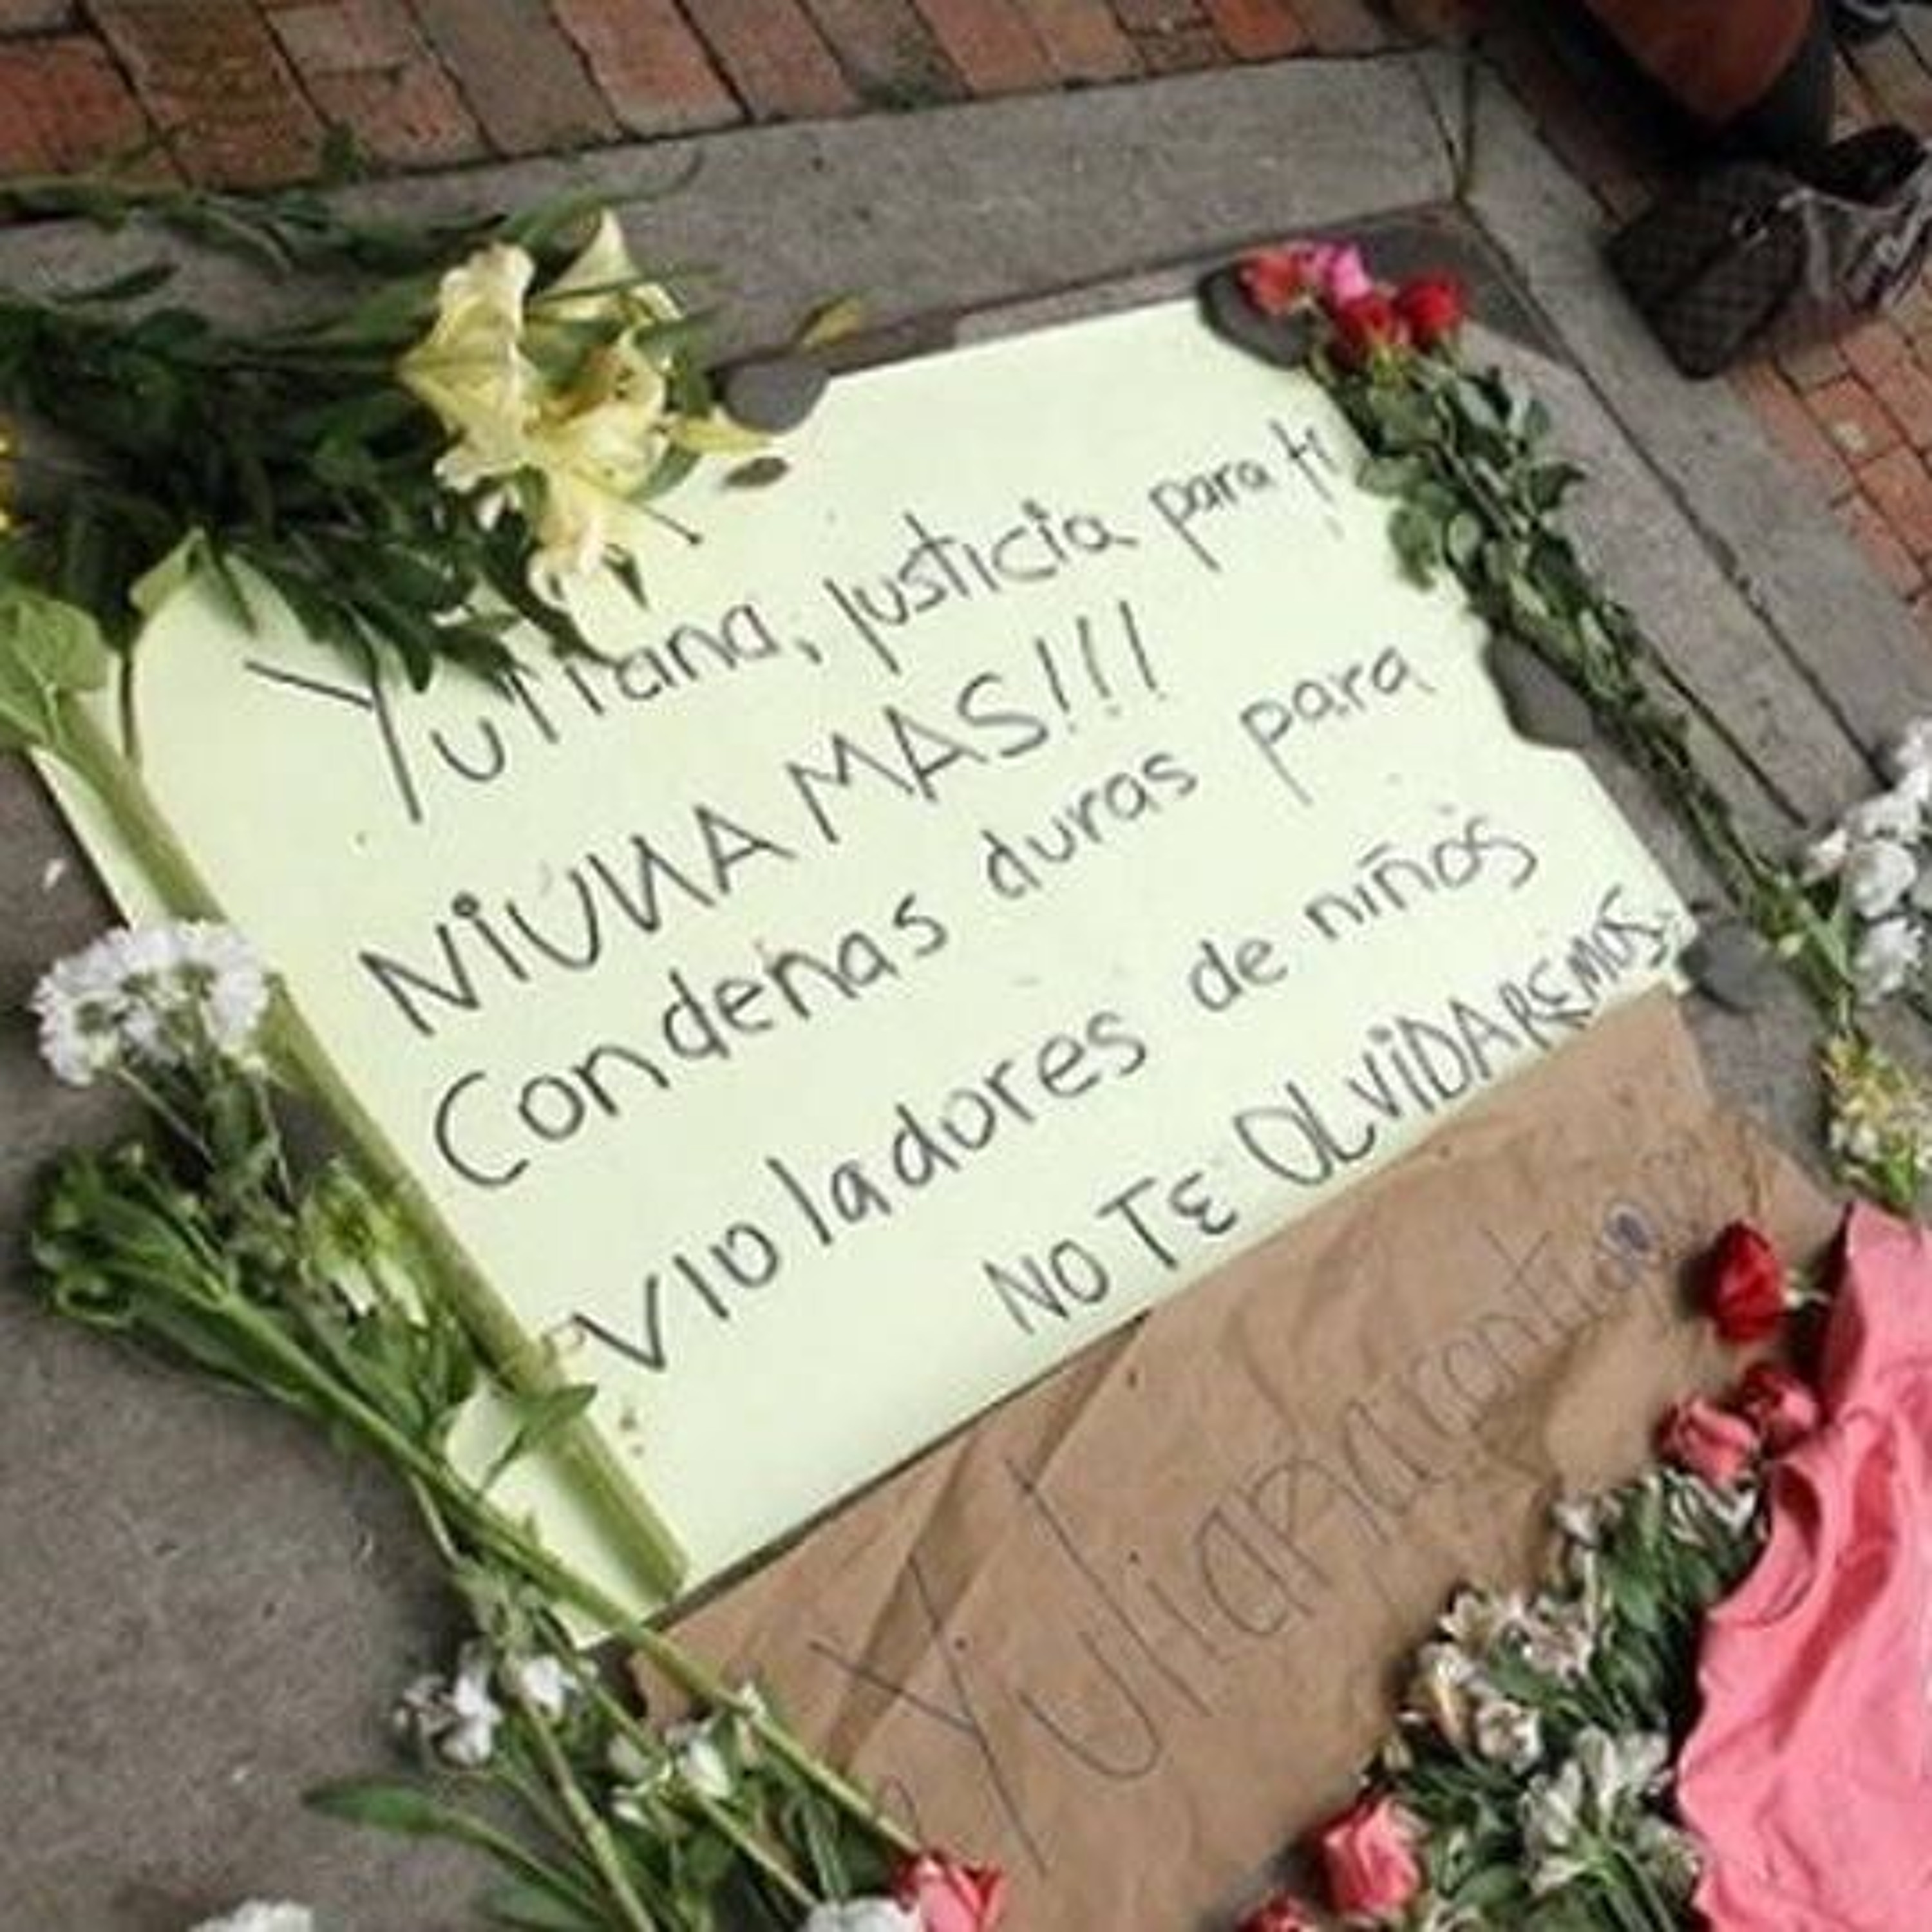 Yuliana, Justicia para ti
NIUNA MAS!!!
Condenas duras para
violadores de niños
NO TE OLVIDAREMOS.
Yuliana